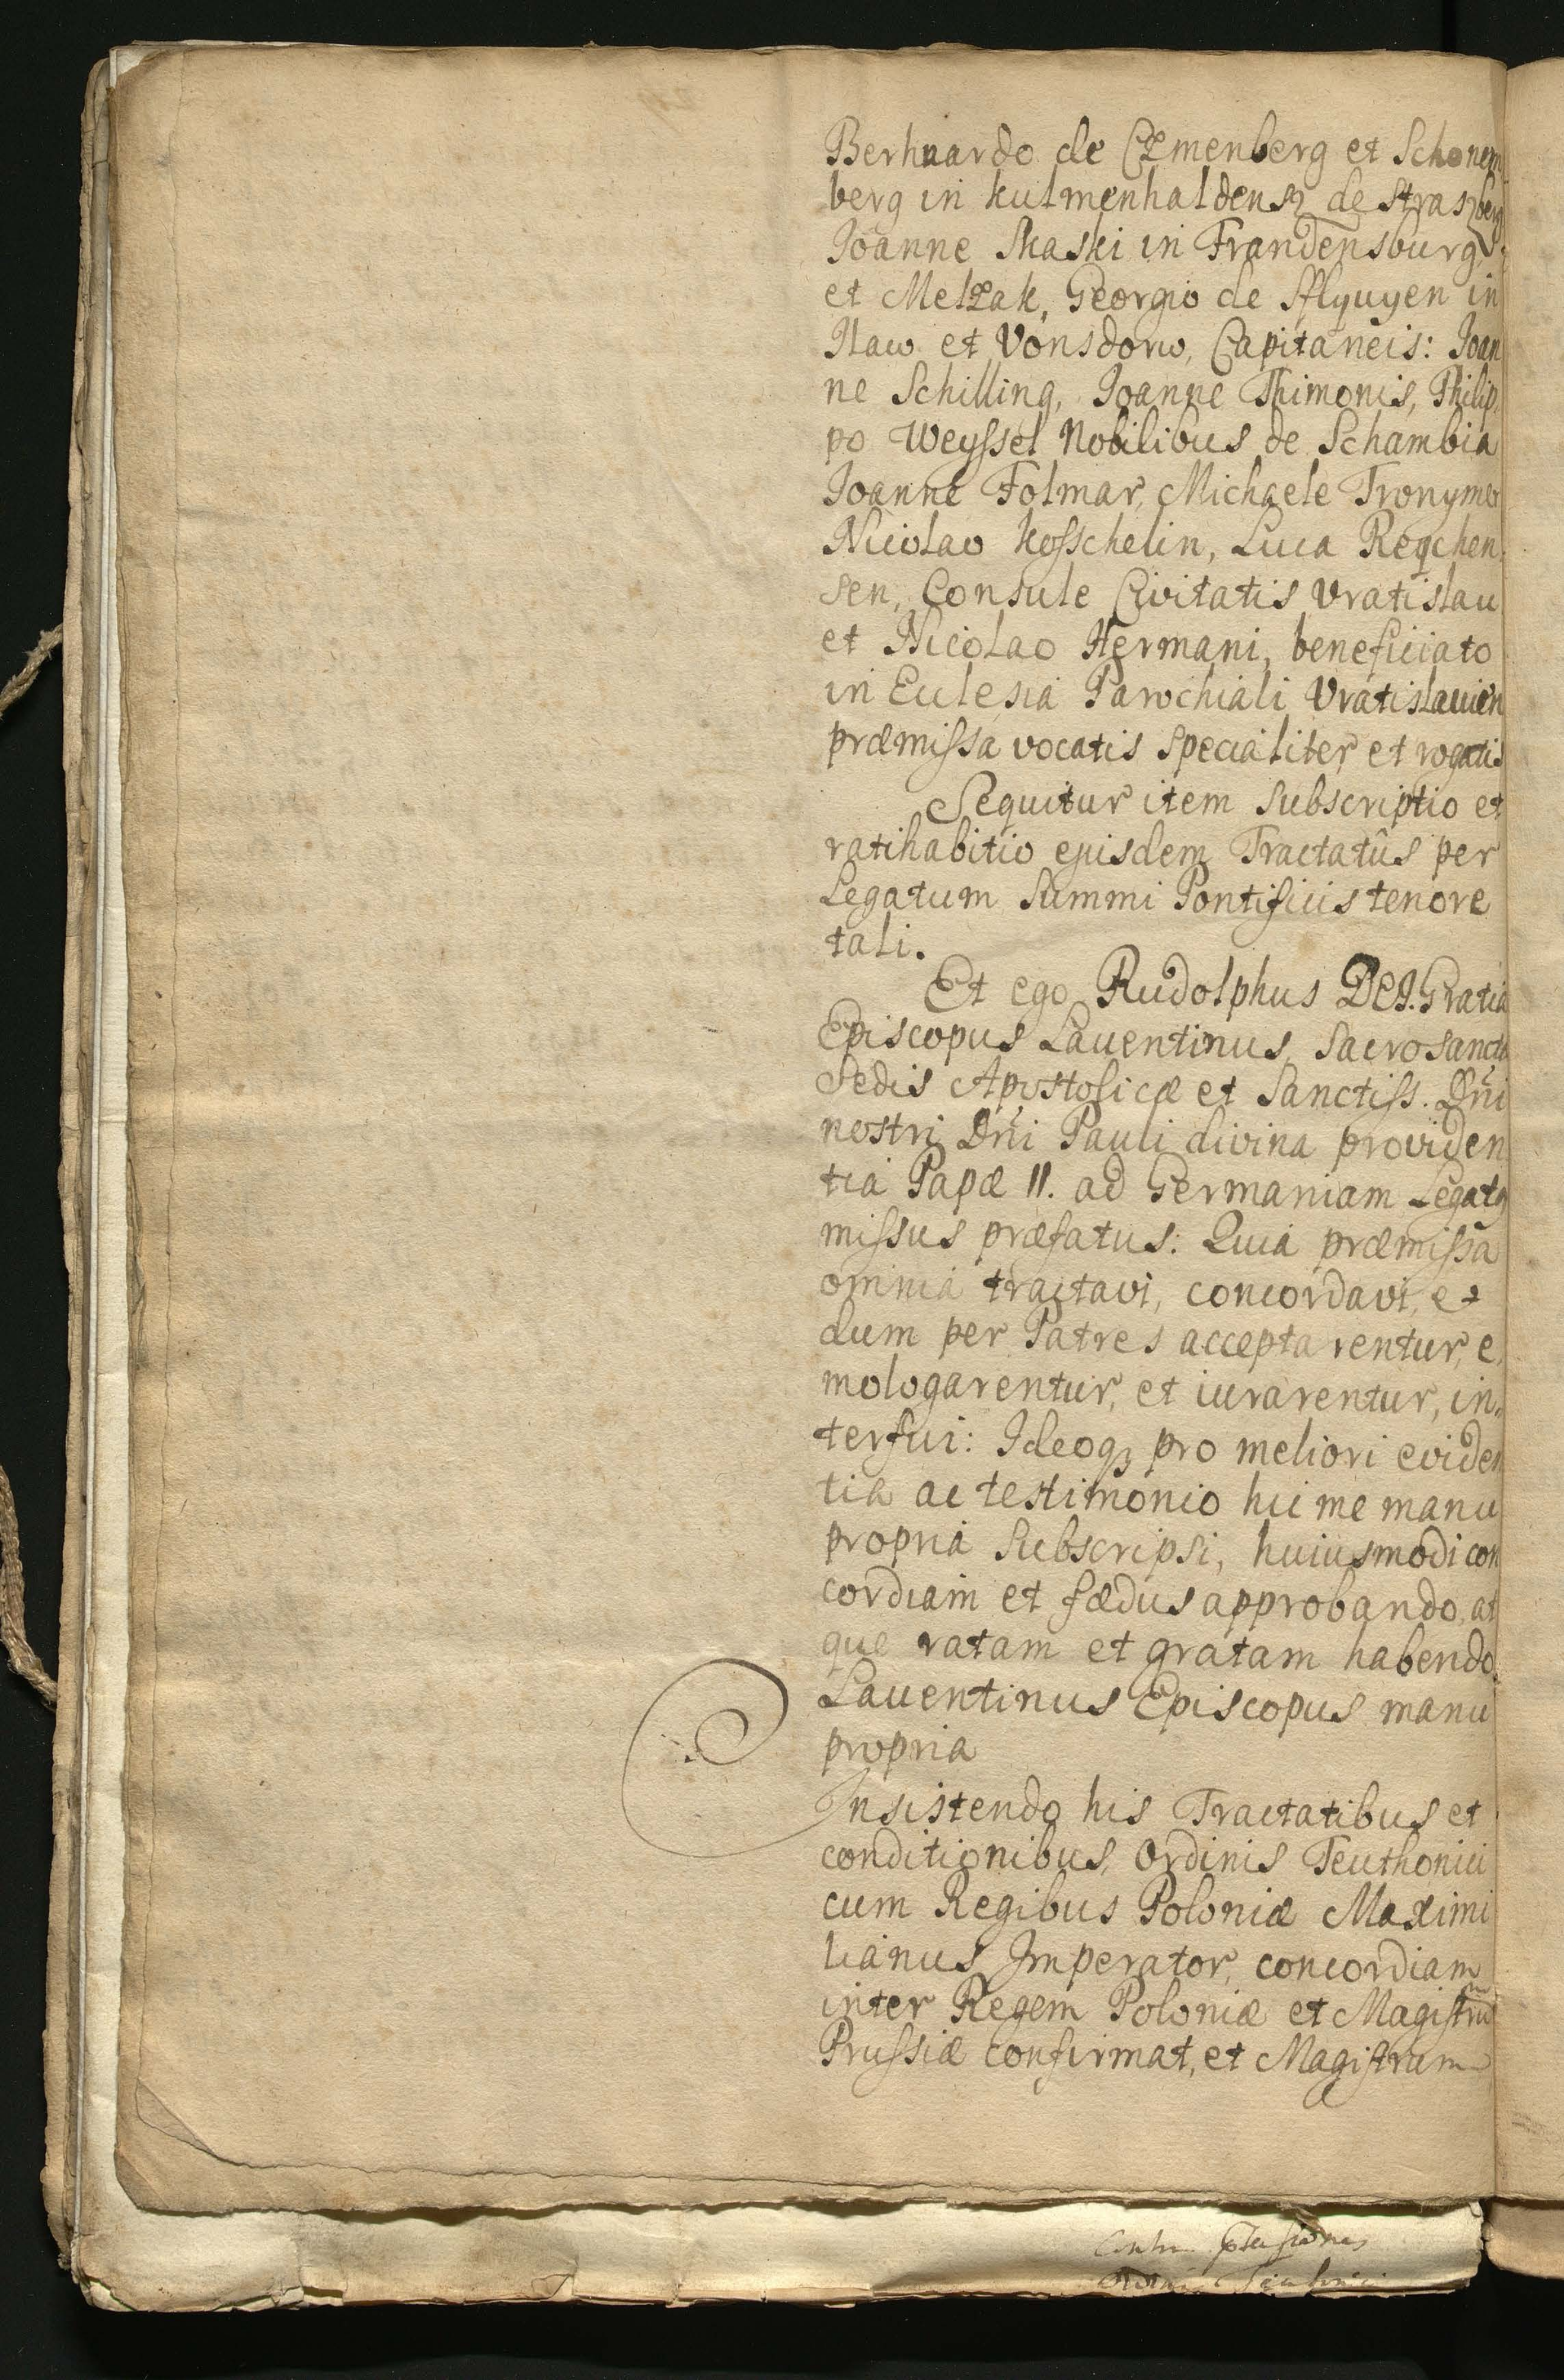 Berhnardo de Czmenberg et Schonem
berg in kulmenhaldensz de Straszberg
Joanne Skaski in Frandensburg,
et Melzak, Georgio de Sflyuyen in
Ilaw et Vonsdorw, Capitaneis: Joan
ne Schilling, Joanne Thimonis, Philip,
po Weyssel Nobilibus de Schambia
Joanne Folmar, Michaele Tronymer
Nicolao kosschelin, Luca Reqchen,
sen, Consule Civitatis Vratislau
et Nicolao Hermani, beneficiato
in Eclesia Parochiali Vratislauien
præmissa vocatis specialiter et rogatis
Sequitur item Subscriptio et
ratihabitio ejusdem Tractatûs per
Legatum Summi Pontificis tenore
tali.
Et ego Rudolphus DEI. Gratia
Episcopus Lauentinus, Sacrosanctæ
Sedis Apostolicæ et Sanctiss. Dni
nostri Dni Pauli divina providen
tia Papæ II. ad Germaniam Legatq
missus præfatus: Quia præmissa
omnia tractavi, concordavi, et
dum per Patres acceptarentur, e,
mologarentur, et iurarentur, in,
terfui: Ideoqz pro meliori eviden
tia ac testimonio hic me manu
propria Subscripsi, huiusmodi con
cordiam et fædus approbando, at
que ratam et gratam habendo.
Lauentinus Episcopus manu
propria
Insistendo his Tractatibus et
conditionibus, Ordinis Teuthonici
cum Regibus Poloniæ Maximi
lianus Imperator, concordiam
inter Regem Poloniæ et Magistrum
Prussiæ confirmat, et Magistrum